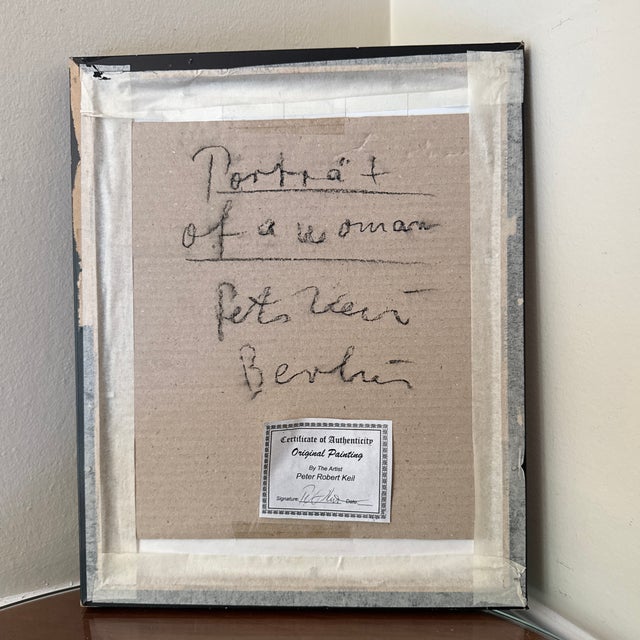 Porträt
of a woman
Peter Keil
Berlin
Certificate of Authenticity
Original Painting
By The Artist
Peter Robert Keil
Signature: Date: